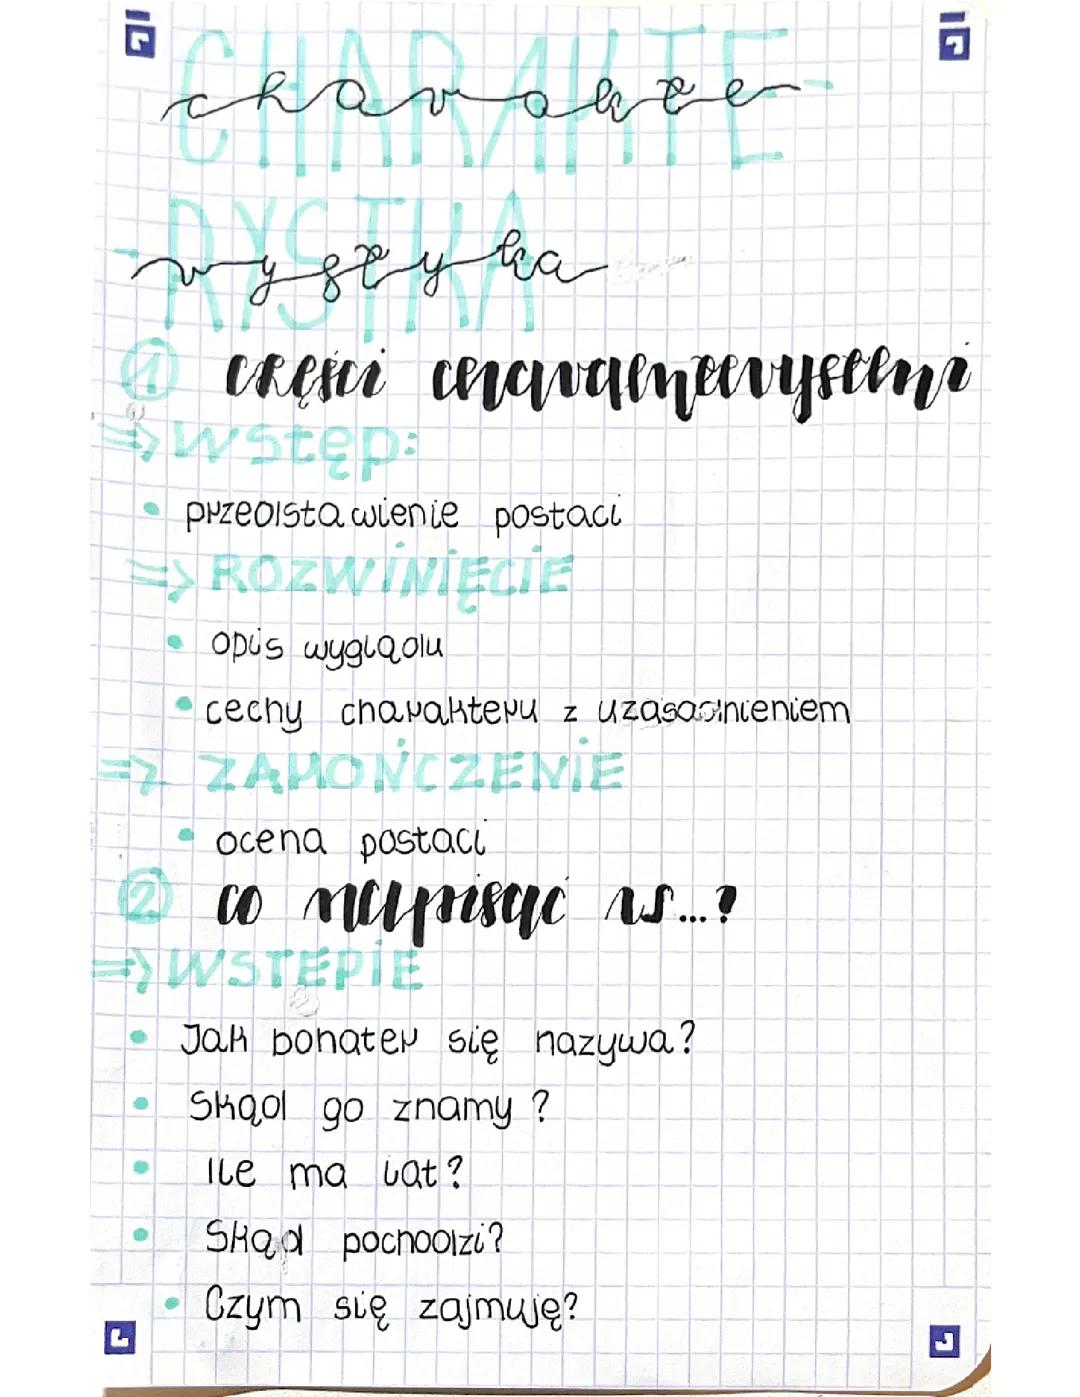 CHARAKTE-
charakte-
-RYSTKA
rystyka
1 części charakterystyki
=> Wstęp:
• przedstawienie postaci
=> ROZWINIĘCIE
• opis wyglądu
• cechy charakteru z uzasadnieniem
=> ZAKOŃCZENIE
• ocena postaci
2 co napisać w...?
=> WSTĘPIE
• Jak bohater się nazywa?
• Skąd go znamy?
• Ile ma lat?
• Skąd pochodzi?
• Czym się zajmuję?